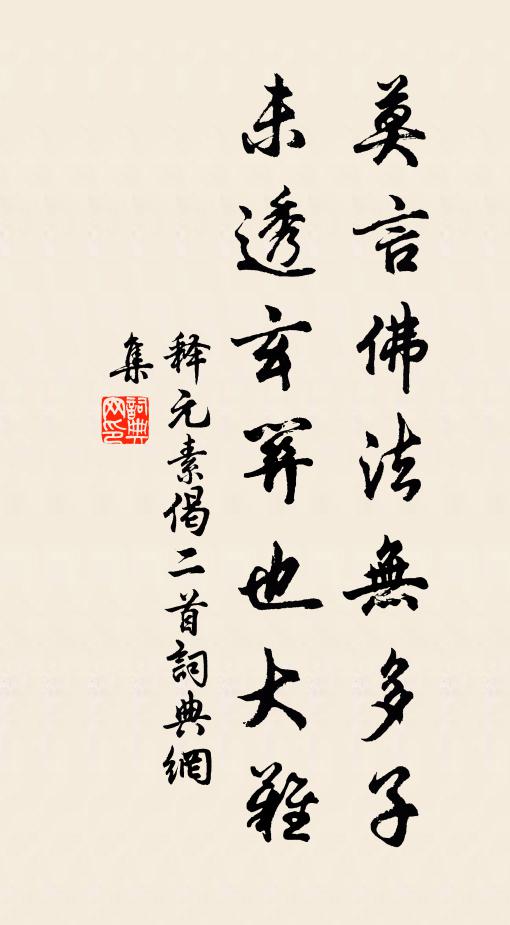 莫言佛法無多子
未透玄關也大難
释元素偈二首詞典網
集
詞典網印